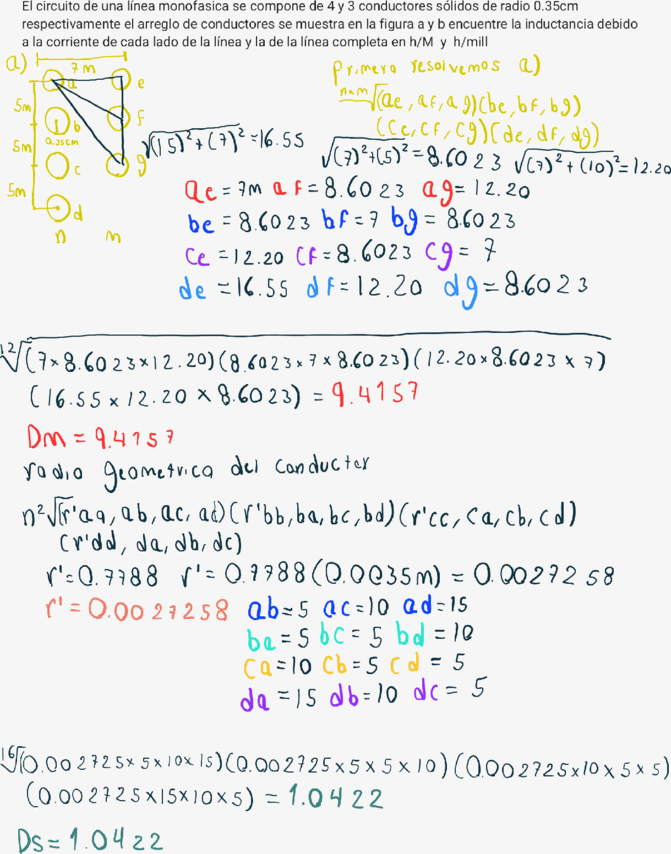 El circuito de una línea monofasica se compone de 4 y 3 conductores sólidos de radio 0.35cm
respectivamente el arreglo de conductores se muestra en la figura a y b encuentre la inductancia debido
a la corriente de cada lado de la línea y la de la línea completa en h/M y h/mill
a)
7m
Primero resolvemos a)
a e
5m
n×m√(ae, af, ag)(be, bf, bg)
f
b
(ce, cf, cg)(de, df, dg)
0.35cm
5m
√(15)²+(7)²=16.55
√(7)²+(5)²=8.6023 √(7)²+(10)²=12.20
c g
5m
ae = 7m af=8.6023 ag=12.20
d
be = 8.6023 bf=7 bg= 8.6023
n m
ce =12.20 cf=8.6023 cg= 7
de =16.55 df=12.20 dg=8.6023
12√(7×8.6023×12.20)(8.6023×7×8.6023)(12.20×8.6023×7)
(16.55×12.20×8.6023) = 9.4157
Dm = 9.4157
radio geometrica del conductor
n²√(r'aa, ab, ac, ad)(r'bb, ba, bc, bd)(r'cc, ca, cb, cd)
(r'dd, da, db, dc)
r'=0.7788 r'= 0.7788(0.0035m) = 0.0027258
r'= 0.0027258 ab=5 ac=10 ad=15
ba=5 bc= 5 bd=10
ca=10 cb=5 cd = 5
da =15 db=10 dc= 5
16√(0.002725×5×10×15)(0.002725×5×5×10)(0.002725×10×5×5)
(0.002725×15×10×5) = 1.0422
Ds=1.0422